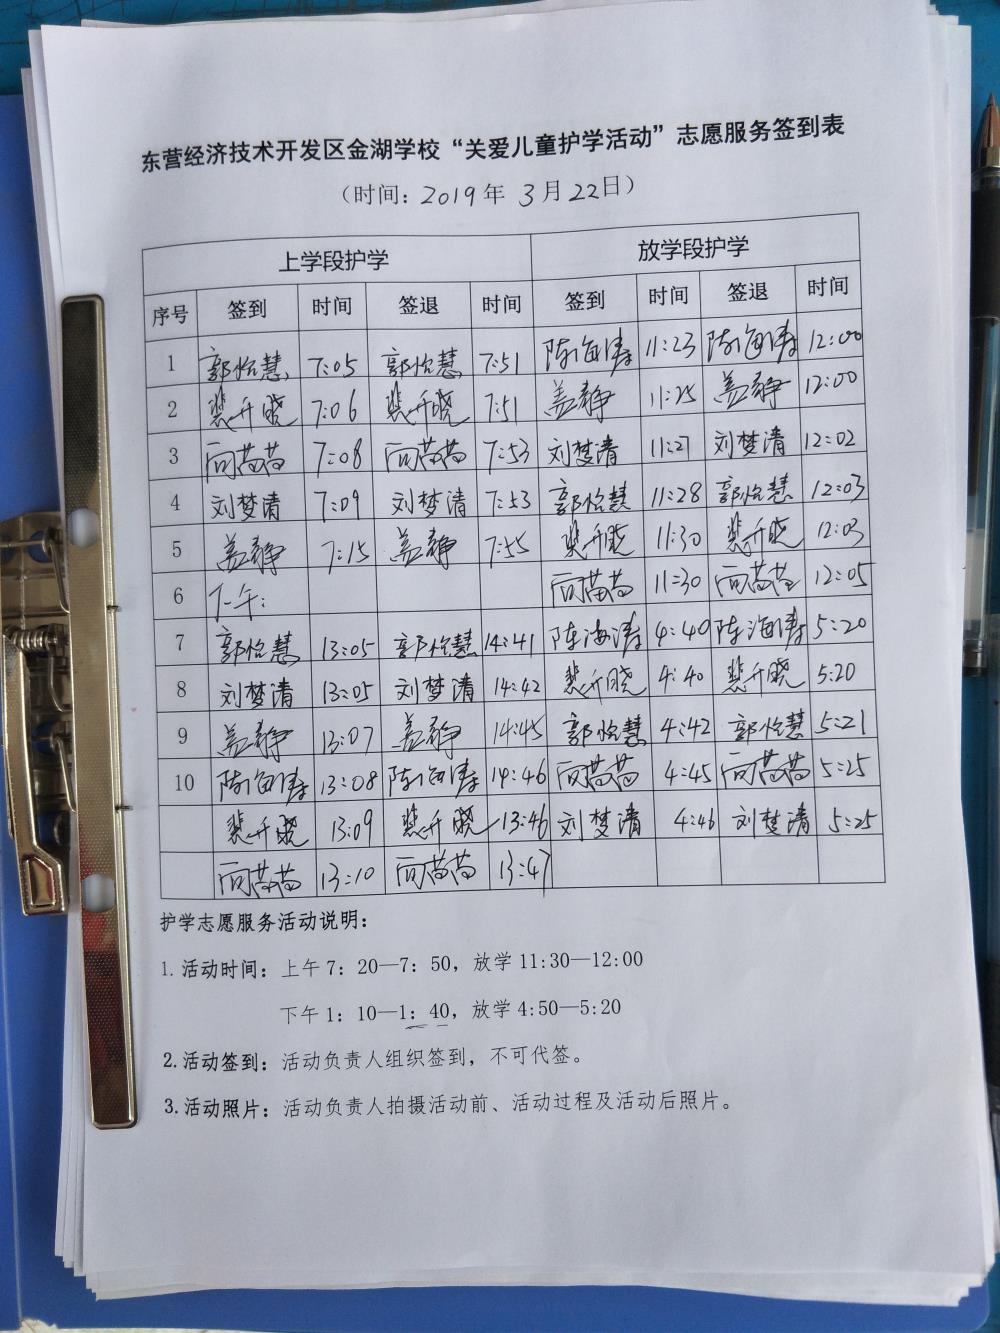 东营经济技术开发区金湖学校“关爱儿童护学活动”志愿服务签到表
（时间：2019年 3月22日）
上学段护学 放学段护学
序号 签到 时间 签退 时间 签到 时间 签退 时间
1 郭怡慧 7:05 郭怡慧 7:51 陈海涛 11:23 陈海涛 12:00
2 裴升晓 7:06 裴升晓 7:51 盖静 11:25 盖静 12:00
3 苗苗 7:08 苗苗 7:53 刘梦清 11:27 刘梦清 12:02
4 刘梦清 7:09 刘梦清 7:53 郭怡慧 11:28 郭怡慧 12:03
5 盖静 7:15 盖静 7:55 裴升晓 11:30 裴升晓 12:03
6 下午: 苗苗 11:30 苗苗 12:05
7 郭怡慧 13:05 郭怡慧 14:41 陈海涛 4:40 陈海涛 5:20
8 刘梦清 13:05 刘梦清 14:42 裴升晓 4:40 裴升晓 5:20
9 盖静 13:07 盖静 14:45 郭怡慧 4:42 郭怡慧 5:21
10 陈海涛 13:08 陈海涛 14:46 苗苗 4:45 苗苗 5:25
裴升晓 13:09 裴升晓 13:46 刘梦清 4:46 刘梦清 5:25
苗苗 13:10 苗苗 13:47
护学志愿服务活动说明：
1. 活动时间：上午 7：20—7：50，放学 11:30—12:00
下午 1：10—1：40，放学 4:50—5:20
2. 活动签到：活动负责人组织签到，不可代签。
3. 活动照片：活动负责人拍摄活动前、活动过程及活动后照片。